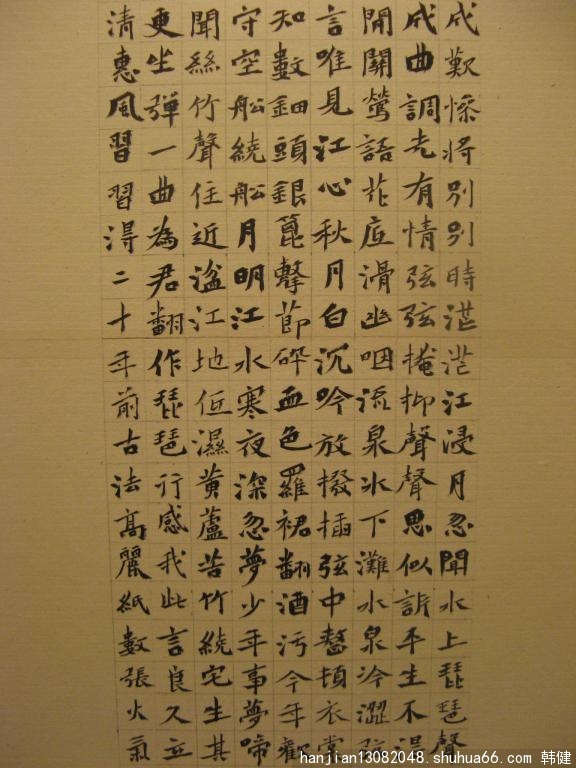 成歡慘將別別時茫茫江浸月忽聞水上琵琶聲
成曲調先有情弦弦掩抑聲聲思似訴平生不得
間關鶯語花底滑幽咽流泉水下灘水泉冷澀弦
言唯見江心秋月白沉吟放撥插弦中整頓衣裳
知數鈿頭銀篦擊節碎血色羅裙翻酒污今年歡
守空船繞船月明江水寒夜深忽夢少年事夢啼
聞絲竹聲住近湓江地低濕黃蘆苦竹繞宅生其
更坐彈一曲為君翻作琵琶行感我此言良久立
清惠風習習得二十年前古法高麗紙數張火氣
hanjian13082048.shuhua66.com 韩健